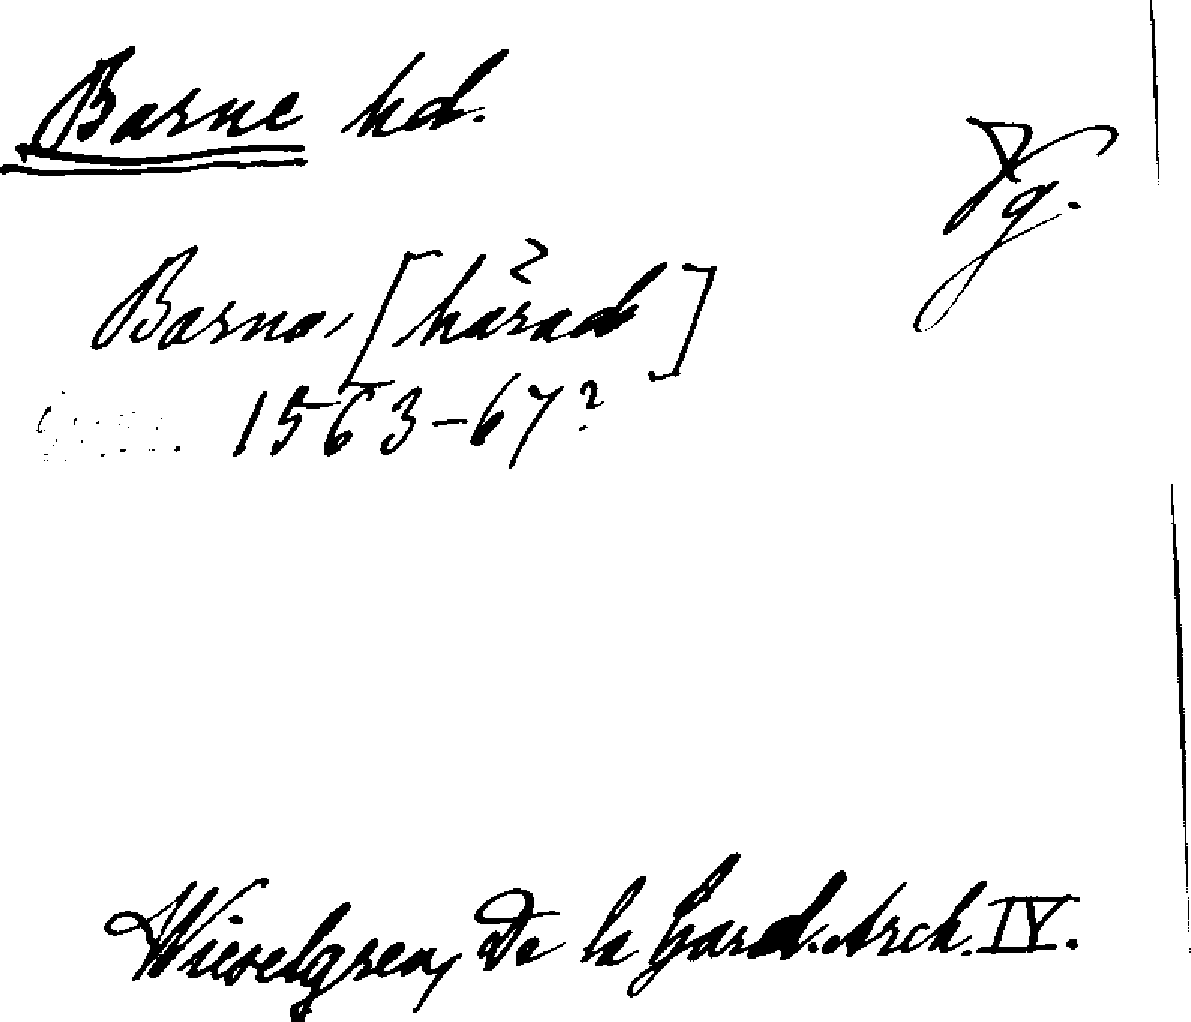 Barne hd.
Vg.
Barna, [härad]
1563-67?
Wieselgren, De la Gard. Arch. IV.